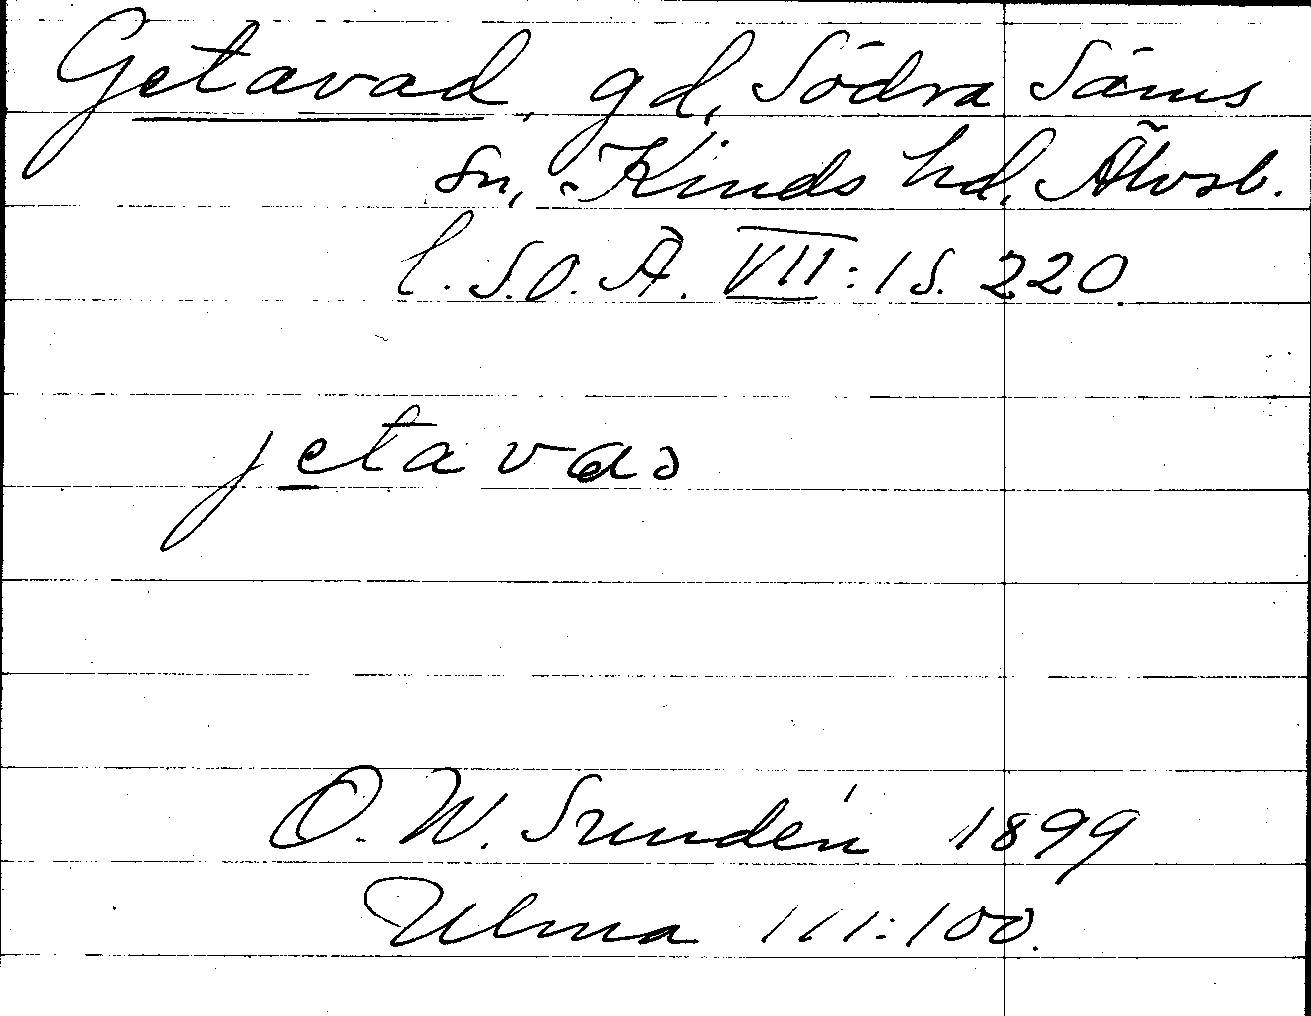 Getavad, gd, Södra Säms
sn, Kinds hd, Älvsb.
l. S.O.Ä. VII:1 S. 220.
jetavas
O. W. Sundén 1899
Ulma 111:100.